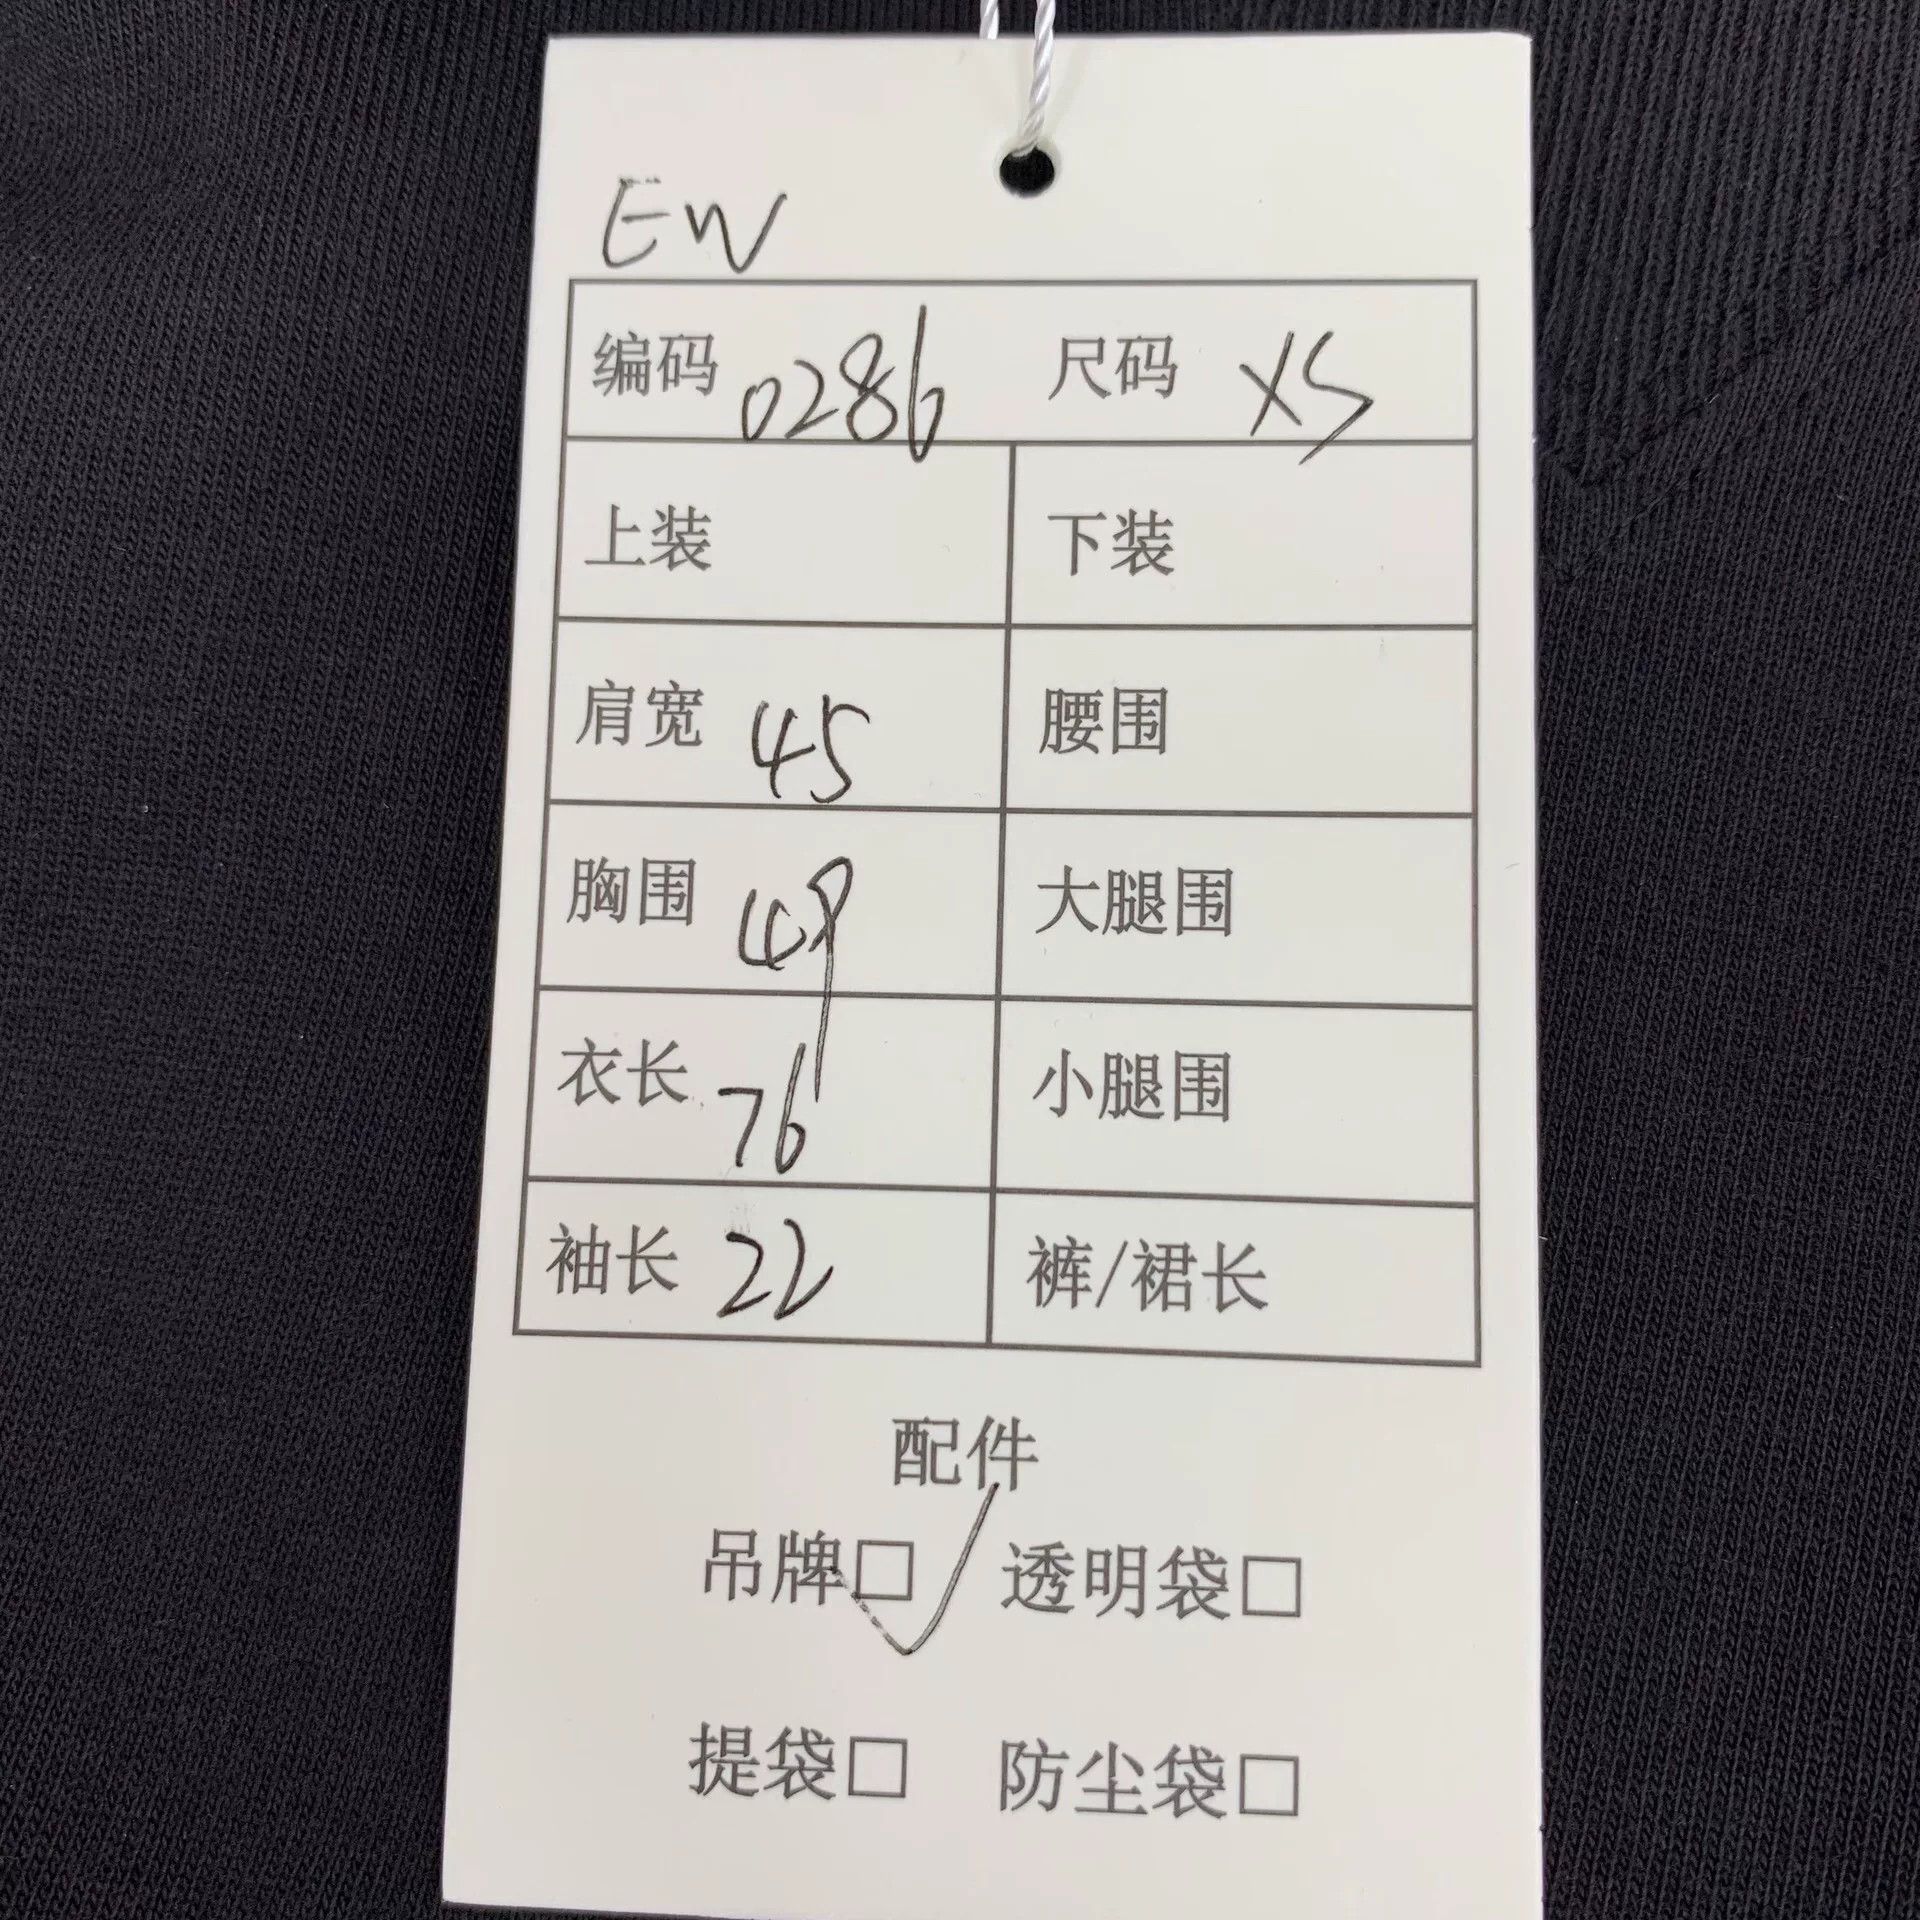 EW
编码 0286 尺码 XS
上装 下装
肩宽 45 腰围
胸围 49 大腿围
衣长 76 小腿围
袖长 22 裤/裙长
配件
吊牌□ 透明袋□
提袋□ 防尘袋□